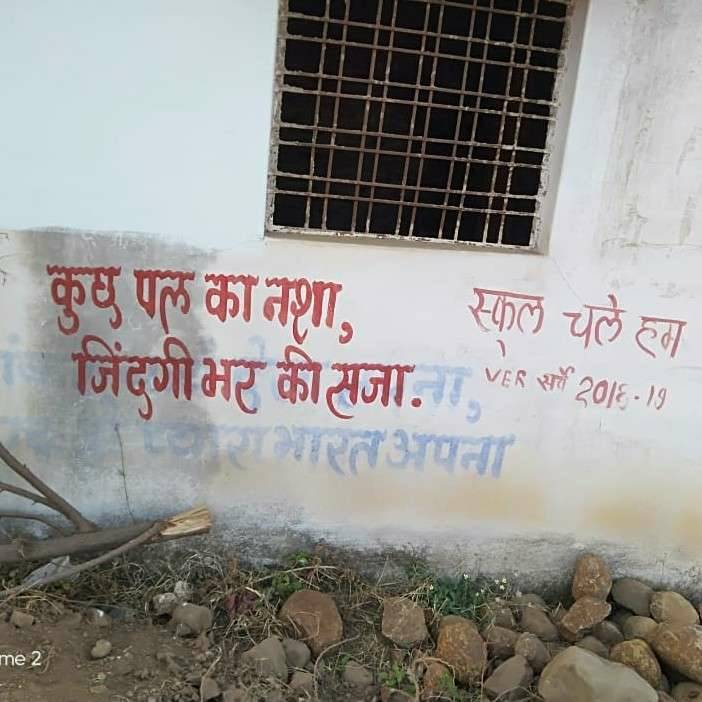 कुछ पल का नशा,
जिंदगी भर की सजा.
स्कूल चले हम
VER सर्वे 2018-19
ना,
प्यारा भारत अपना
me 2